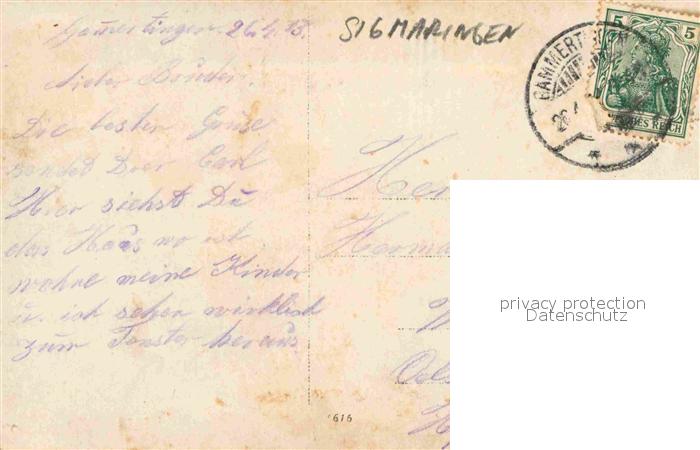 Gamertingen. 26.4.13.
SIGMARINGEN
Lieber Bruder.
Die besten Grüse
sendet Dier Carl
Hier siehst Du
das Haus wo ich
wohne meine Kinder
u. ich sehen wirklich
zum Fenster heraus.
GAMMERTINGEN
26
5 5
DEUTSCHES REICH
Her
Herma
616
privacy protection
Datenschutz